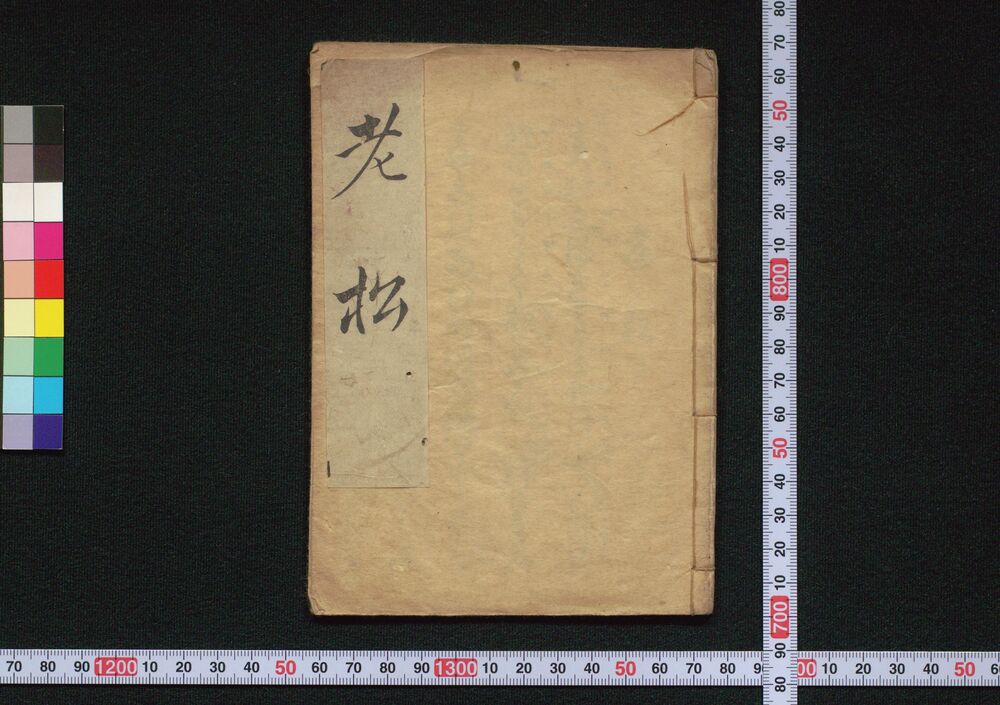 老松
80
70
60
50
40
30
20
10
800
90
80
70
60
50
40
30
20
10
700
90
80
70 80 90 1200 10 20 30 40 50 60 70 80 90 1300 10 20 30 40 50 60 70 80 9 00 10 20 30 40 50 6